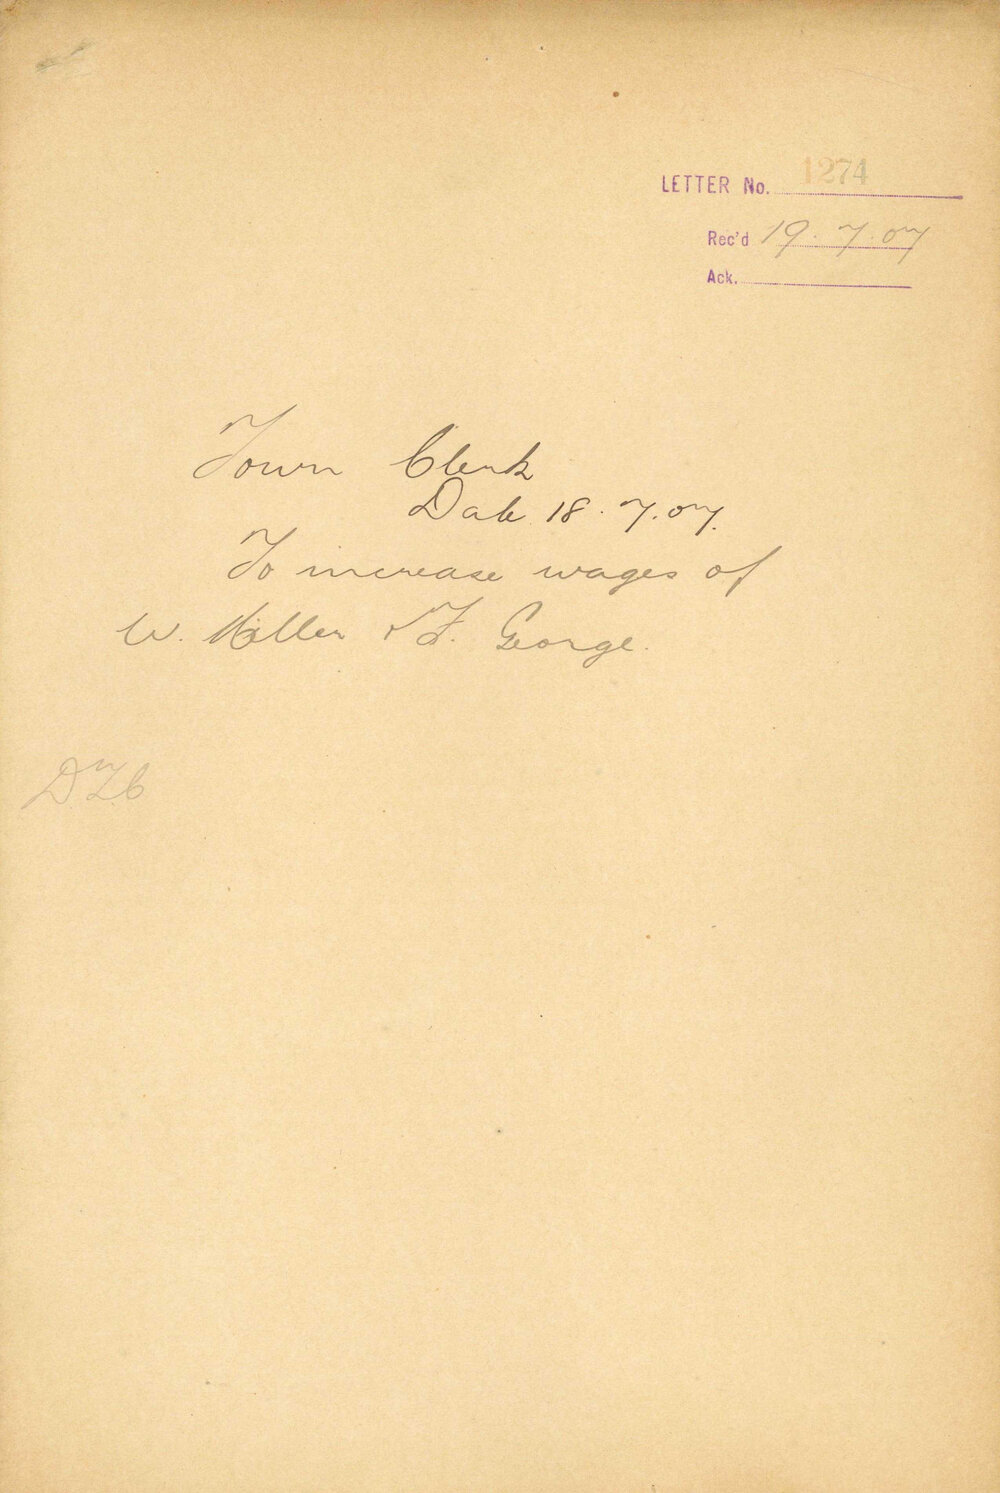 LETTER No. 1274
Rec'd 19.7.07
Ack.
Town Clerk
Date 18.7.07.
To increase wages of
W. Miller & F. George.